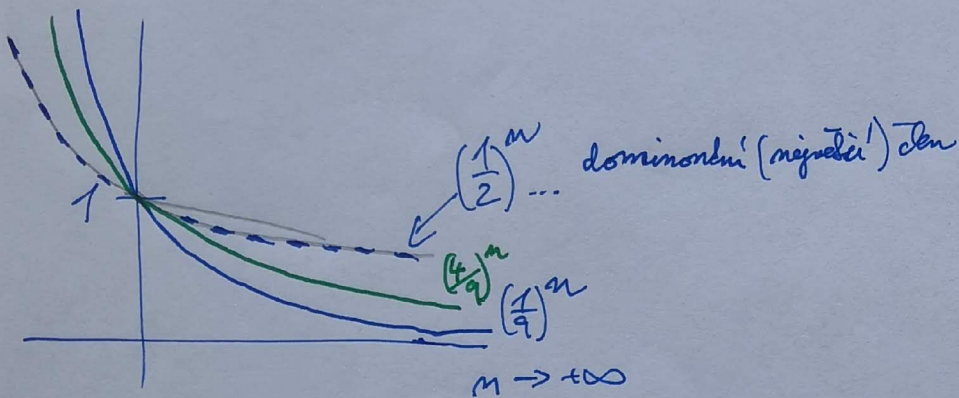 (1/2)^n ... dominantní (největší) člen
1
(4/9)^n
(1/9)^n
n → +∞